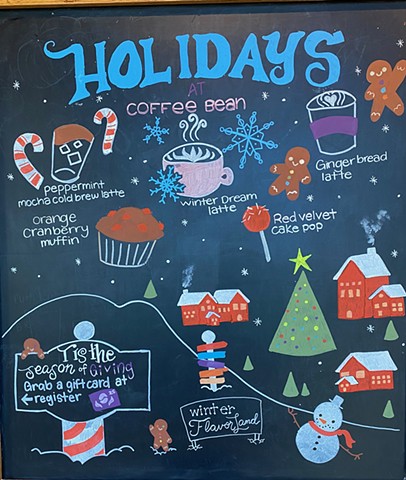 HOLIDAYS
AT
COFFEE BEan
peppermint
mocha cold brew latte
winter Dream
latte
Gingerbread
latte
orange
Cranberry
muffin
Red velvet
cake pop
'Tis the
season of Giving
Grab a giftcard at
← register
winter
Flavorland